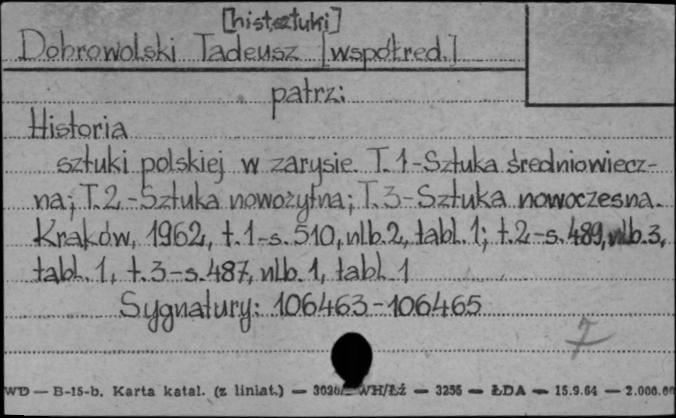 [hist.sztuki]
Dobrowolski Tadeusz [współred.]
patrz:
Historia
sztuki polskiej w zarysie. T.1-Sztuka średniowiecz-
na; T.2-Sztuka nowożytna; T.3-Sztuka nowoczesna.
Kraków, 1962, t.1-s.510, nlb.2, tabl.1; t.2-s.489, nlb.3,
tabl.1, t.3-s.487, nlb.1, tabl.1
Sygnatury: 106463-106465
7
WD — B-15-b. Karta katal. (z liniat.) — WH/Łż — 3256 — ŁDA — 15.9.64 — 2.000.00